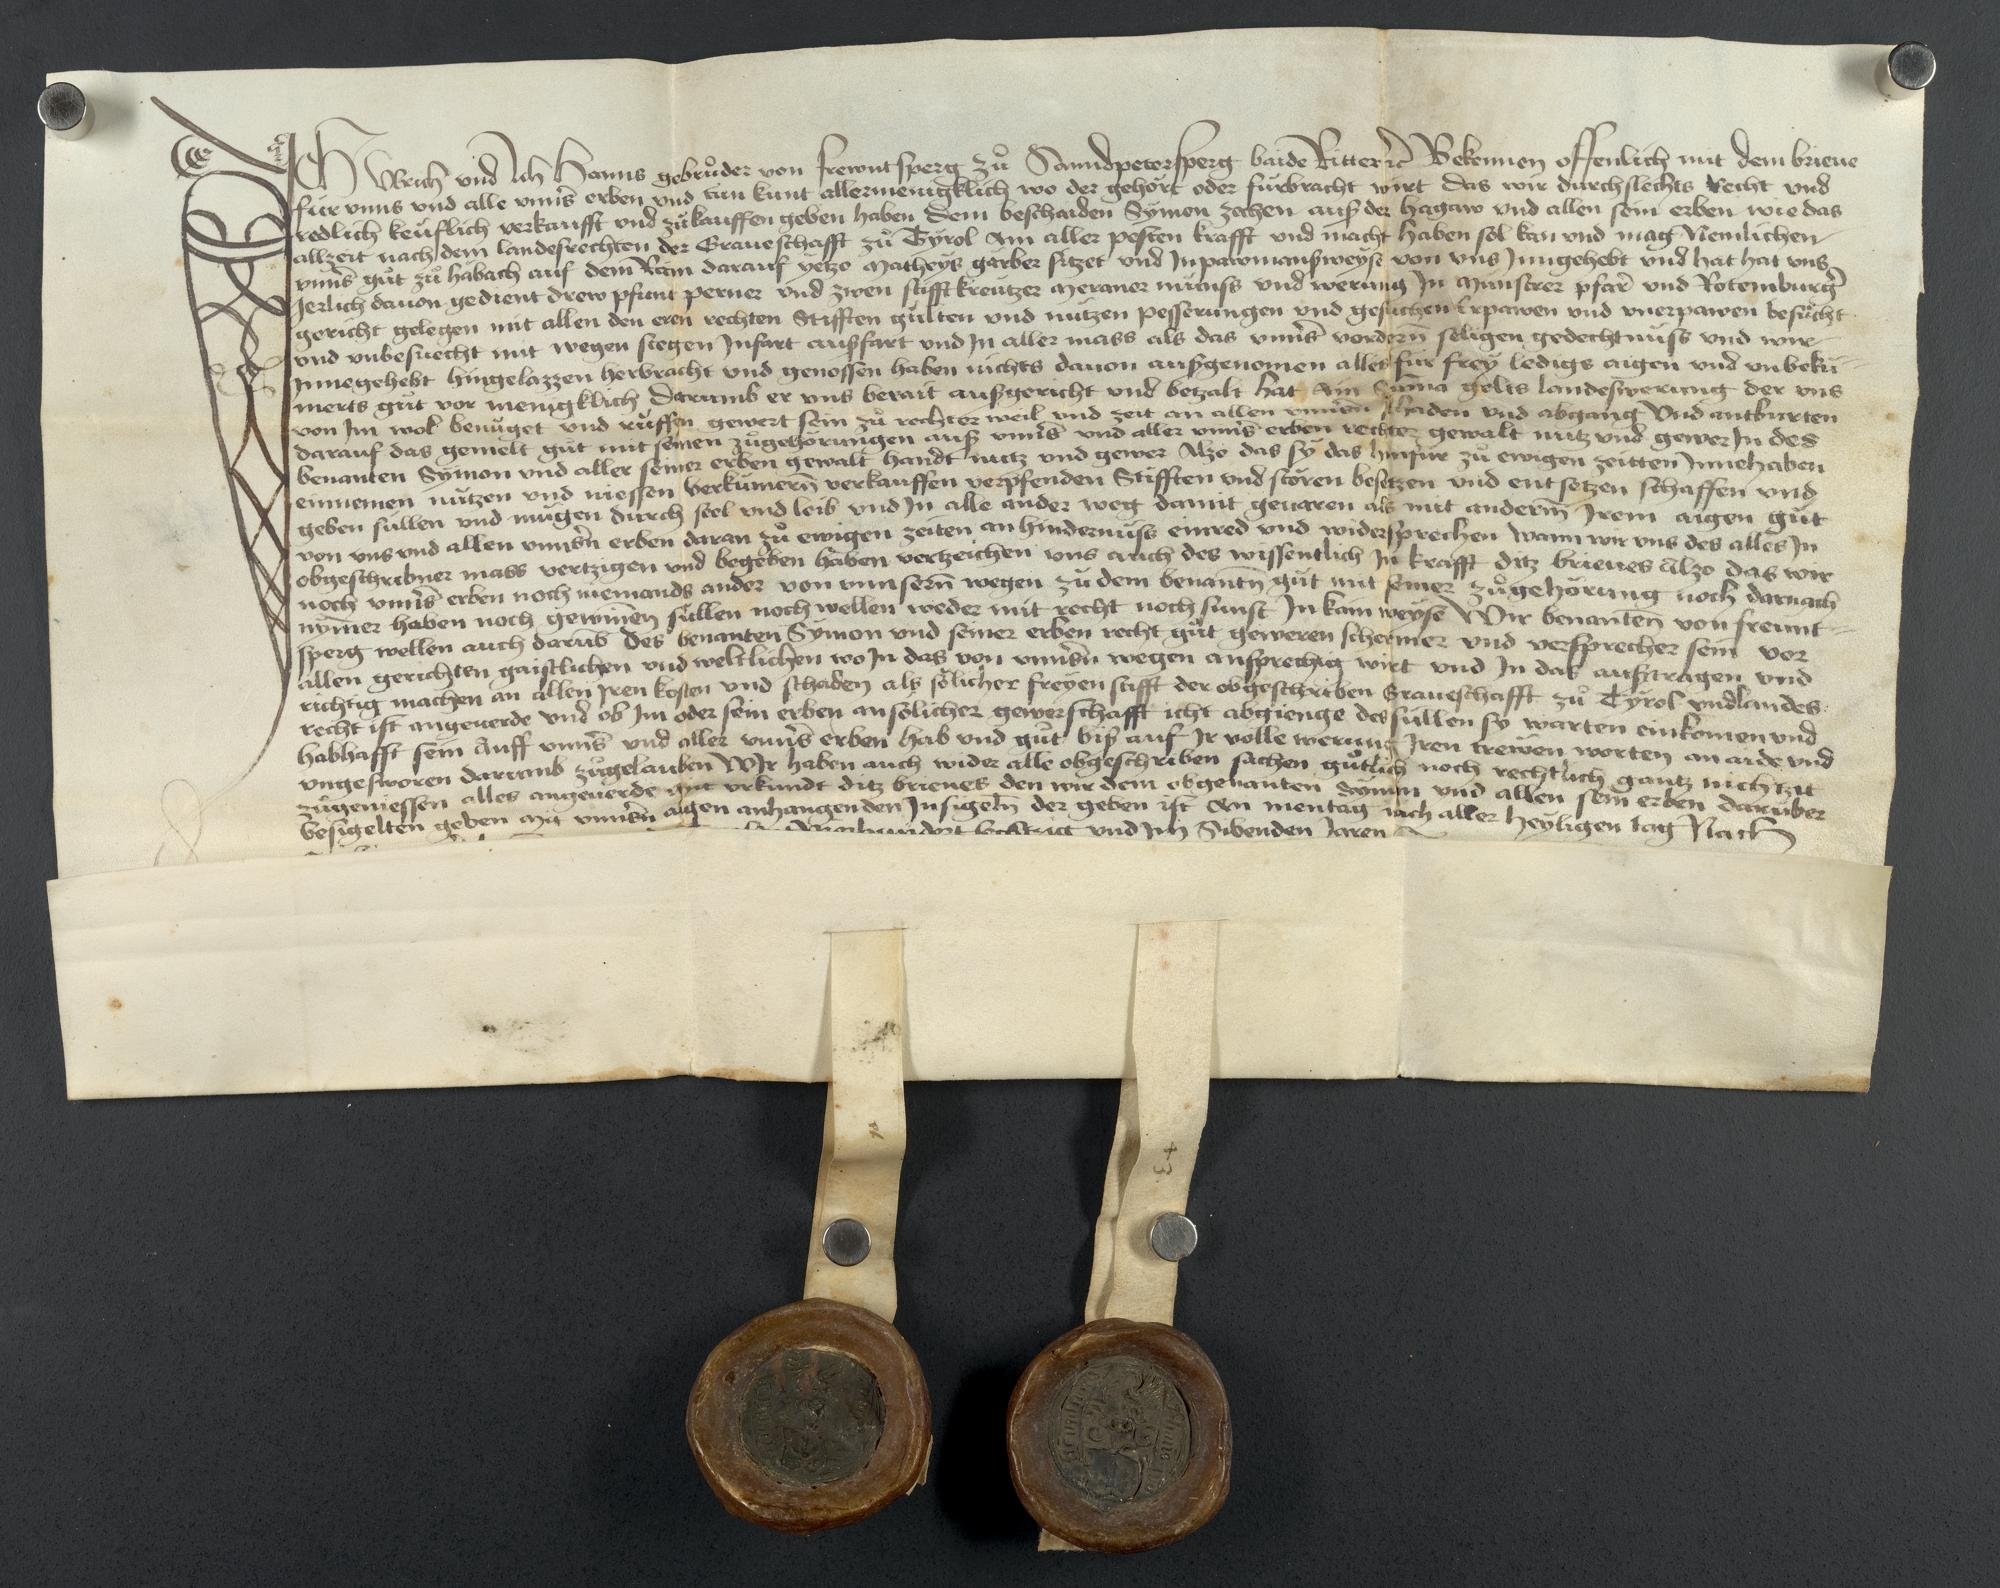 ICH Ulrich und Ich Hanns gebrůder von frewntsperg zů Sanndpetersperg baide Ritter ꝛc Bekennen offenlich mit dem brieue
für vnns vnd alle vnnsˀ erben vnd tun kunt allermenigklich wo der gehört oder fürbracht wirt das wir durchslechts Recht vnd
redlich keuflich verkaufft vnd zů kauffen geben haben dem beschaiden Symon zechen auß der hagaw vnd allen sein erben wie das
allzeit nach dem landesrechten der Graueschafft zů Tyrol Am aller pesten krafft vnd macht haben sol kan vnd mag Nemlichen
vnnsˀ gůt zů habach auf dem Rain darauf yetzo Matheys garber sitzet vnd In pawmansweyse von vns Inngehebt vnd hat hat vns
Jerlich dauon gedient drew pfunt perner vnd zwen stifft kreutzer Meraner münss vnd werung In Münstrer pfarˀ vnd Rotemburgˀ
gericht gelegen mit allen den eren rechten Stifften gülten vnd nützen pesserungen vnd gesuchen Erpawen vnd vnerpawen besůcht
vnd vnbesuecht mit wegen stegen Infart außfart vnd In aller mass als das vnnsˀ vordern̄ säligen gedechtnüss vnd wir
Innegehebt hingelazzen herbracht vnd genossen haben nichts dauon außgenomen alles für frey ledigs aigen vnd vnbekü-
merts gůt vor menigklich Darumb er vns berait außgericht vnd betzalt hat Ain Suma gelts landeswerung der vns
von Im wol benůget vnd růffen gewert sein zů rechter weil vnd zeit an allen vnnsern schaden vnd abgang Vnd antburten
darauf das gemelt gůt mit seinen zůgehörungen auß vnnsˀ vnd aller vnnsˀ erben rechter gewalt nutz vnd gewer In des
benanten Symon vnd aller seiner erben gewalt handt nutz vnd gewer Alzo das sy das hinfür zů ewigen zeitten Innehaben
einnemen nützen vnd niessen verkümern̄ verkauffen verpfenden Stifften vnd stören besetzen vnd entsetzen schaffen vnd
geben süllen vnd mügen durch seel vnd leib vnd In alle ander weg damit geuaren als mit anderm̄ Irem aigen gůt
von vns vnd allen vnnsˀn erben daran zů ewigen zeiten an hindernüss einred vnd widersprechen Wann wir vns des alles In
obgeschribner mass vertzigen vnd begeben haben vertzeichen vns auch des wissentlich In krafft ditz brieues Alzo das wir
noch vnnsˀ erben noch niemands ander von vnnsern̄ wegen zu dem benantn̄ gůt mit seiner zůgehörung noch darnach
nymer haben noch gewinnen süllen noch wellen weder mit recht noch sunst In kain weyse Wir benanten von freunt-
sperg wellen auch darub des benanten Symon vnd seiner erben recht gůt geweren schermer vnd versprecher sein vor
allen gerichten gaistlichen vnd weltlichen wo In das von vnnsˀn wegen ansprechig wirt vnd In das austragen vnd
richtig machen an allen Iren kosten vnd schaden als sölicher freyen stifft der obgeschriben Graueschafft zů Tyrol vnd landes
recht ist angeuerde vnd ob Im oder sein erben an solicher gewerschafft icht abgienge des süllen sy warten einkomen vnd
habhafft sein Auff vnnsˀ vnd aller vnnsˀ erben hab vnd gůt biß auf Ir volle werung Iren trewen worten an aide vnd
vngesworen darumb zůgelauben Wir haben auch wider alle obgeschriben sachen gůtlich noch rechtlich gantz nichtzit
zůgeniessen alles angeuerde Mit vrkundt ditz brieues den wir dem obgenanten Symon vnd allen sein erben darüber
besigelten geben Mit vnnsˀn aigen anhangenden Insigeln̄ der geben ist An mentag nach aller heyligen tag Nach
vierhundert fünfftzig vnd Im Sibenden Jaren
43